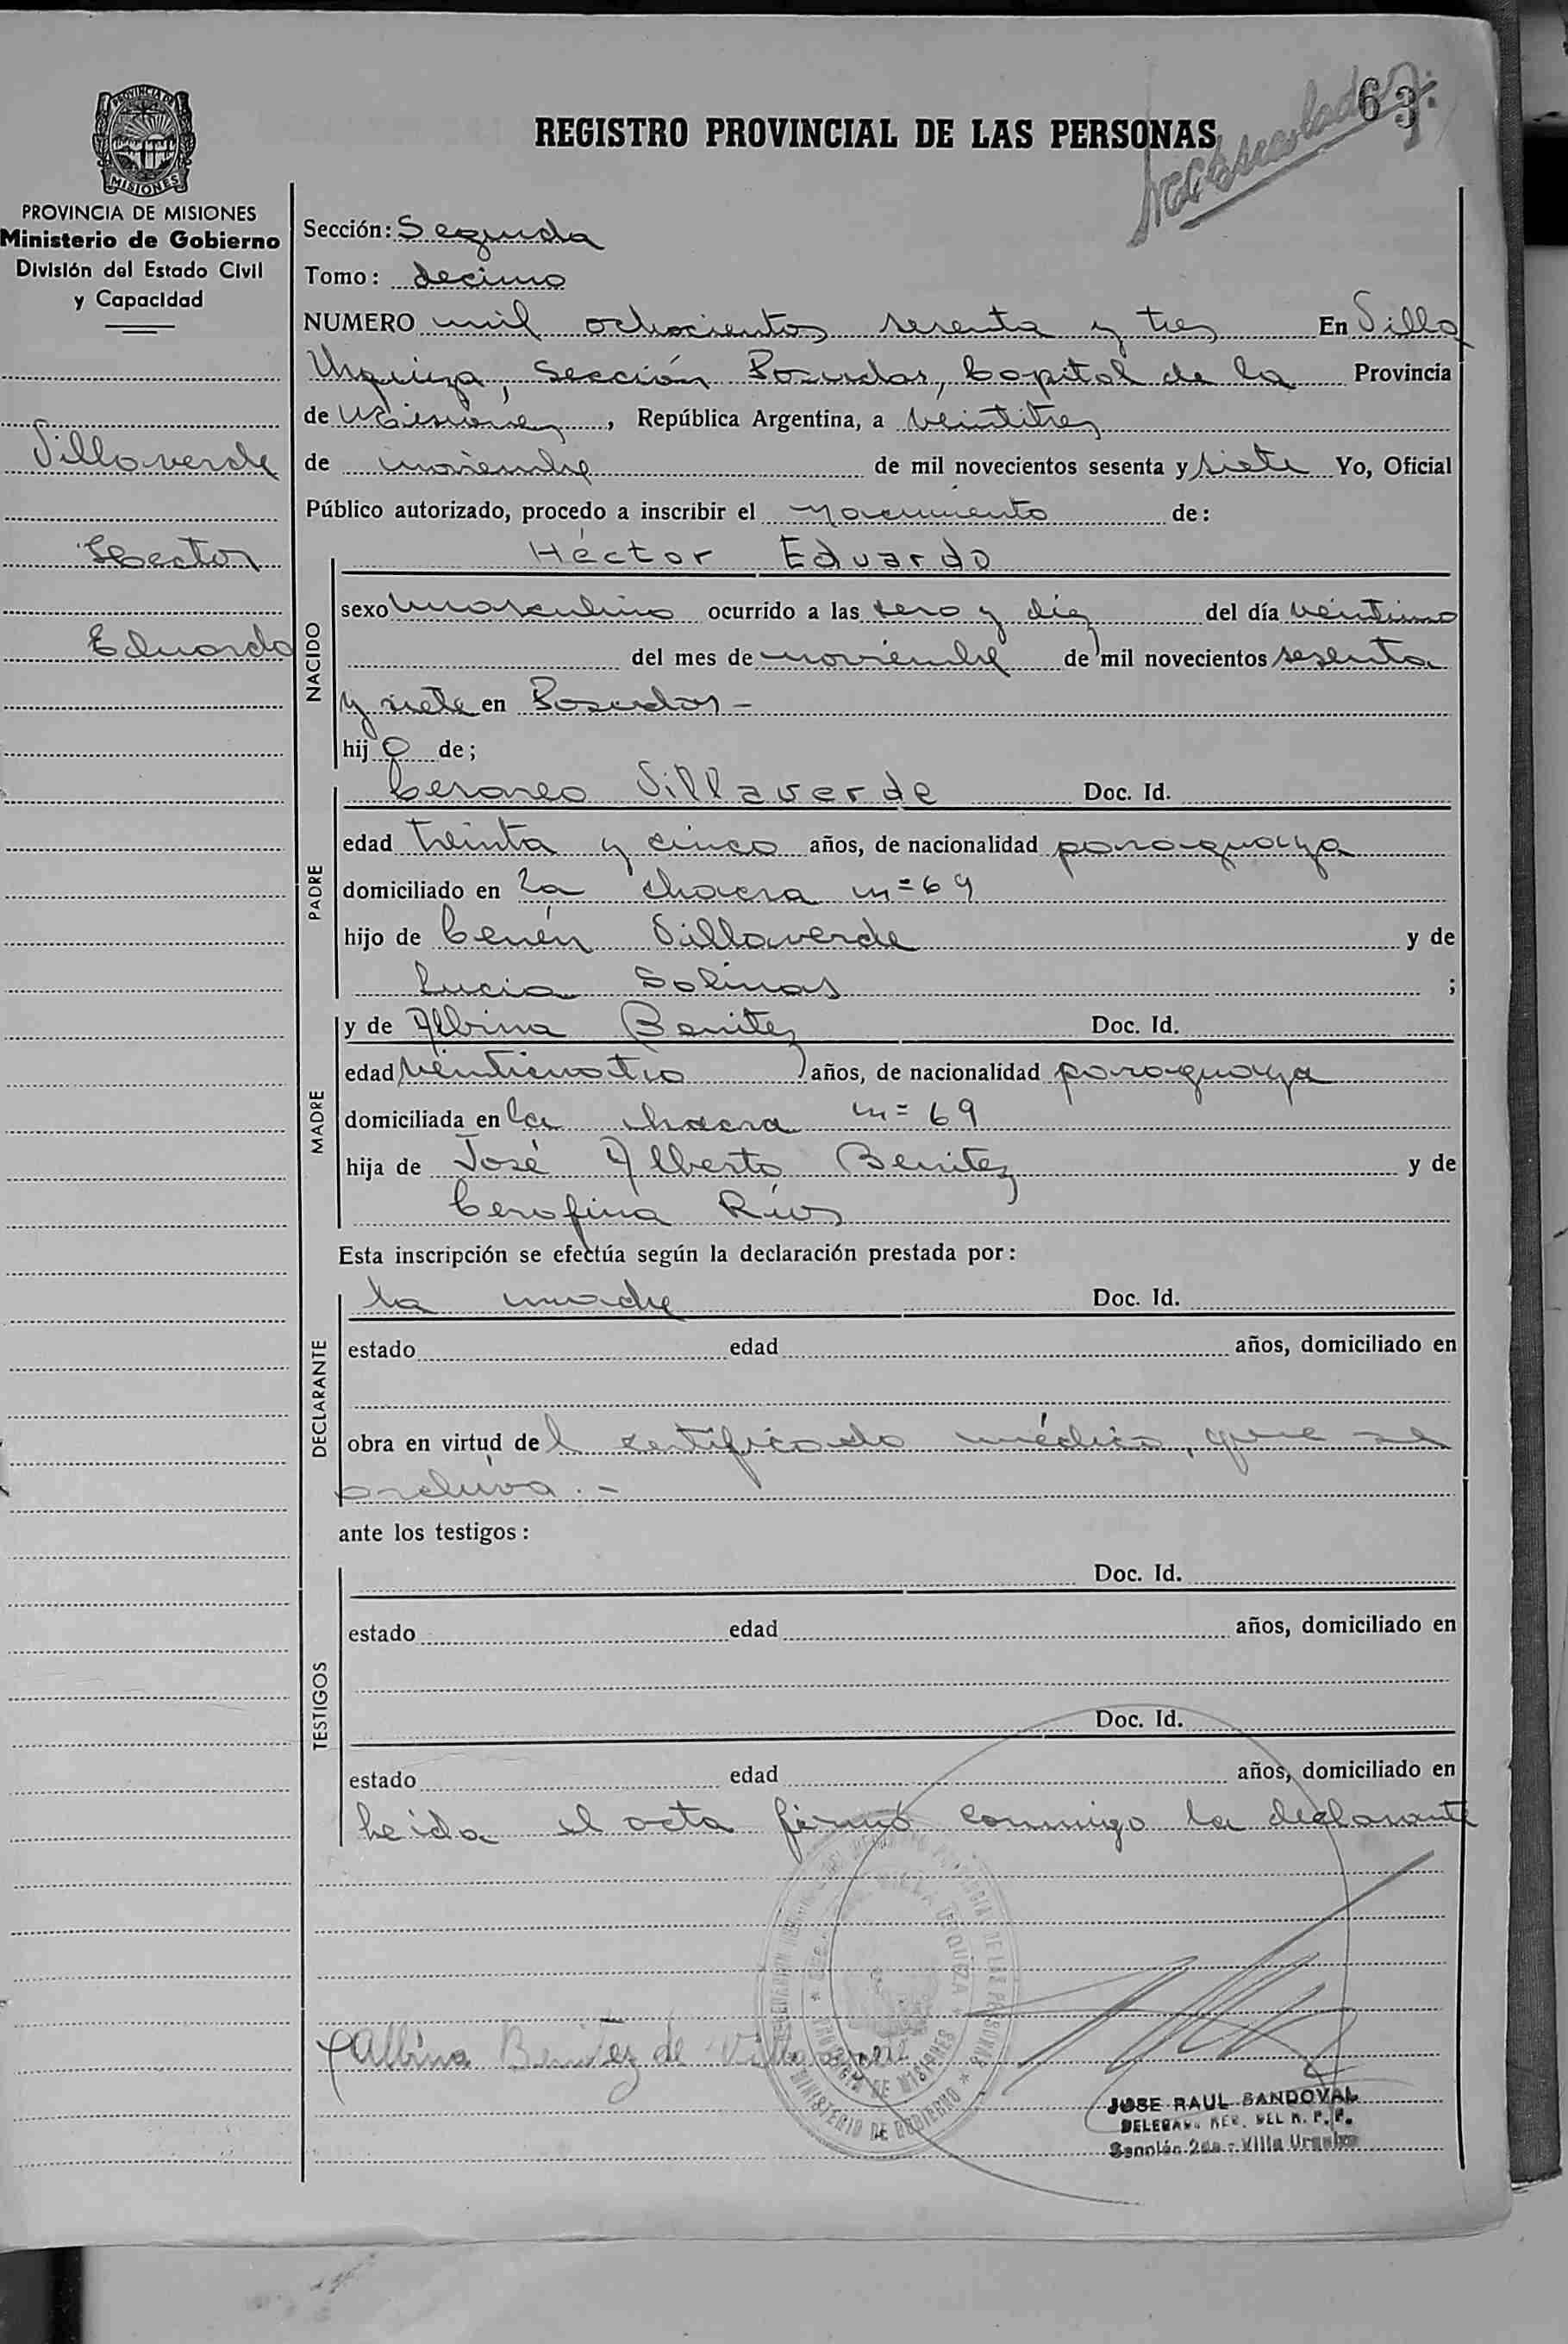 63
REGISTRO PROVINCIAL DE LAS PERSONAS
PROVINCIA DE
MISIONES
PROVINCIA DE MISIONES
Ministerio de Gobierno
División del Estado Civil
y Capacidad
Villaverde
Hector
Eduardo
Sección: Segunda
Tomo: decimo
NUMERO mil ochocientos sesenta y tres En Villa
Urquiza, Sección Posadas, Capital de la Provincia
de Misiones, República Argentina, a veintitres
de noviembre de mil novecientos sesenta y siete Yo, Oficial
Público autorizado, procedo a inscribir el nacimiento de:
NACIDO
Héctor Eduardo
sexo masculino ocurrido a las cero y diez del día veintiuno
del mes de noviembre de mil novecientos sesenta
y siete en Posadas -
hijo de;
PADRE
Cerareo Villaverde Doc. Id.
edad treinta y cinco años, de nacionalidad paraguaya
domiciliado en la chacra n= 69
hijo de Cenén Villaverde y de
Lucia Solinas ;
MADRE
y de Albina Benitez Doc. Id.
edad veinticuatro años, de nacionalidad paraguaya
domiciliada en la chacra n= 69
hija de José Alberto Benitez y de
Cerofina Ríos
Esta inscripción se efectúa según la declaración prestada por:
DECLARANTE
la madre Doc. Id.
estado edad años, domiciliado en
obra en virtud del certificado médico, que se
archiva.-
ante los testigos:
TESTIGOS
Doc. Id.
estado edad años, domiciliado en
Doc. Id.
estado edad años, domiciliado en
Leida el acta firmó conmigo la declarante
Albina Benitez de Villaverde
VILLA URQUIZA
PROVINCIA DE MISIONES
MINISTERIO DE GOBIERNO
JOSE RAUL SANDOVAL
DELEGADO REG. DEL R. P. P.
Sección 2da - Villa Urquiza